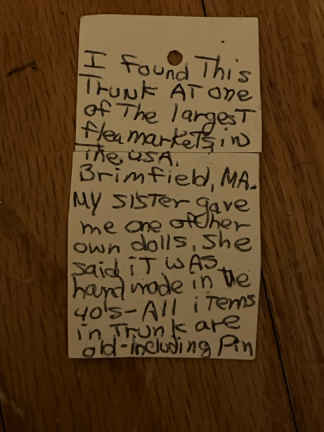 I found This
Trunk AT one
of The largesT
fleamarkeTs in
The, USA.
Brimfield, MA.
My SISTer gave
me one of her
own dolls, She
said iT wAS
handmade in the
40's-All iTems
in Trunk are
old-including Pin